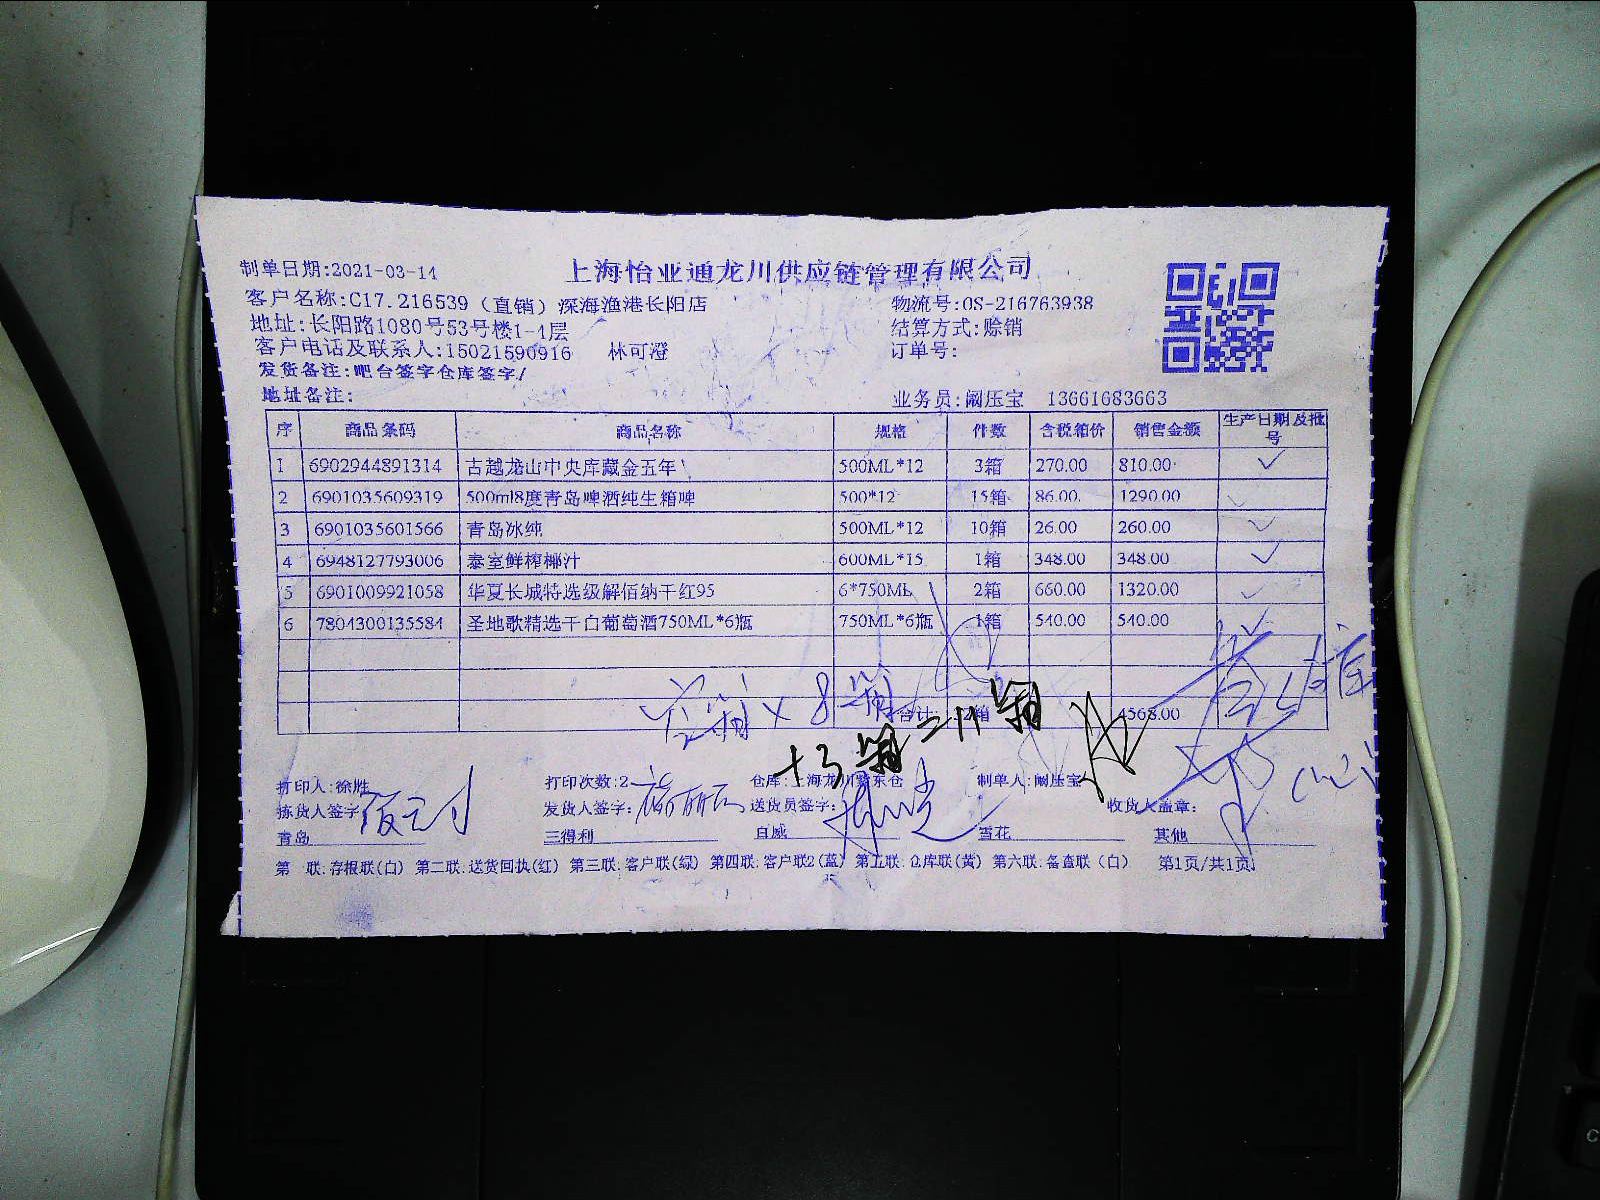 上海怡亚通龙川供应链管理有限公司
制单日期:2021-03-14
客户名称:C17.216539（直销）深海渔港长阳店 物流号:OS-216763938
地址:长阳路1080号53号楼1-1层 结算方式:赊销
客户电话及联系人:15021590916 林可澄 订单号:
发货备注:吧台签字仓库签字/
地址备注: 业务员:阚压宝 13661683663
序 商品条码 商品名称 规格 件数 含税箱价 销售金额 生产日期及批号
1 6902944891314 古越龙山中央库藏金五年 500ML*12 3箱 270.00 810.00
2 6901035609319 500ml8度青岛啤酒纯生箱啤 500*12 15箱 86.00 1290.00
3 6901035601566 青岛冰纯 500ML*12 10箱 26.00 260.00
4 6948127793006 泰室鲜榨椰汁 600ML*15 1箱 348.00 348.00
5 6901009921058 华夏长城特选级解佰纳干红95 6*750ML 2箱 660.00 1320.00
6 7804300135584 圣地歌精选干白葡萄酒750ML*6瓶 750ML*6瓶 1箱 540.00 540.00
空箱×8箱
合计 32箱 4568.00
+3箱=11箱
打印人:徐胜 打印次数:2 仓库:上海龙川 东仓 制单人:阚压宝
拣货人签字: 发货人签字: 送货员签字: 收货人盖章:
青岛 三得利 百威 雪花 其他
第一联:存根联(白) 第二联:送货回执(红) 第三联:客户联(绿) 第四联:客户联2(蓝) 第五联:仓库联(黄) 第六联:备查联（白） 第1页/共1页